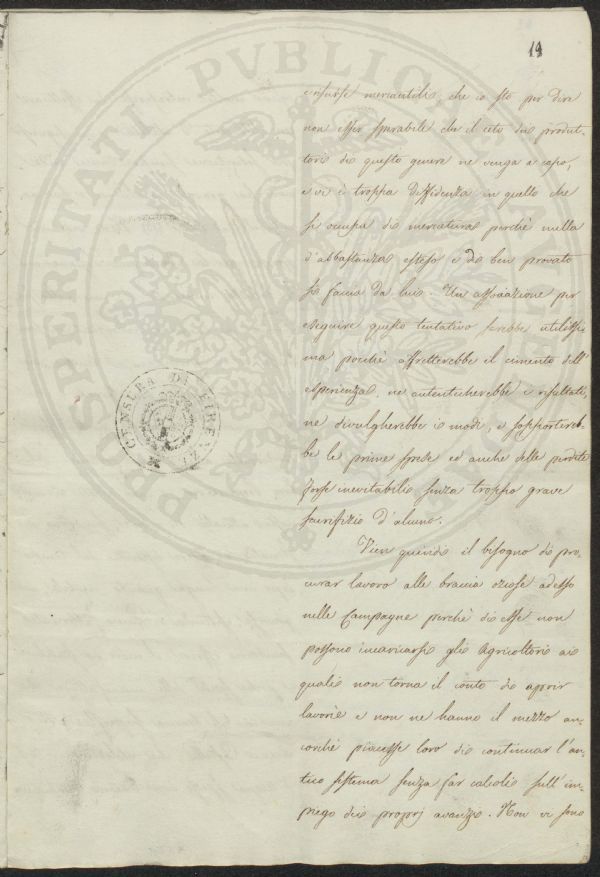 14
e risorse mercantili, che io sto per dire
non esser sperabile che il ceto dei produt-
tori di questo genere ne venga a capo,
e vi è troppa diffidenza in quello che
si occupa di mercatura perchè nulla
d'abbastanza esteso e di ben provato
si faccia da lui. Un associazione per
eseguire questo tentativo sarebbe utilissi-
ma poichè affretterebbe il cimento dell'
esperienza, ne autenticherebbe i resultati,
ne divulgherebbe i modi, e sopporterebe-
be le prime spese ed anche delle perdite
forse inevitabili senza troppo grave
sacrifizio d'alcuno.
Vien quindi il bisogno di pro-
curar lavoro alle braccia oziose adesso
nelle Campagne perchè di esse non
possono incaricarsi gli Agricoltori ai
quali non torna il conto di aprir
lavori e non ne hanno il mezzo an-
corchè piacesse loro di continuar l'an-
tico sistema senza far calcoli sull'im-
piego dei proprj avanzi. Non vi sono
CENSURA DI FIRENZE
PROSPERITATI PVBLICAE AVGENDAE